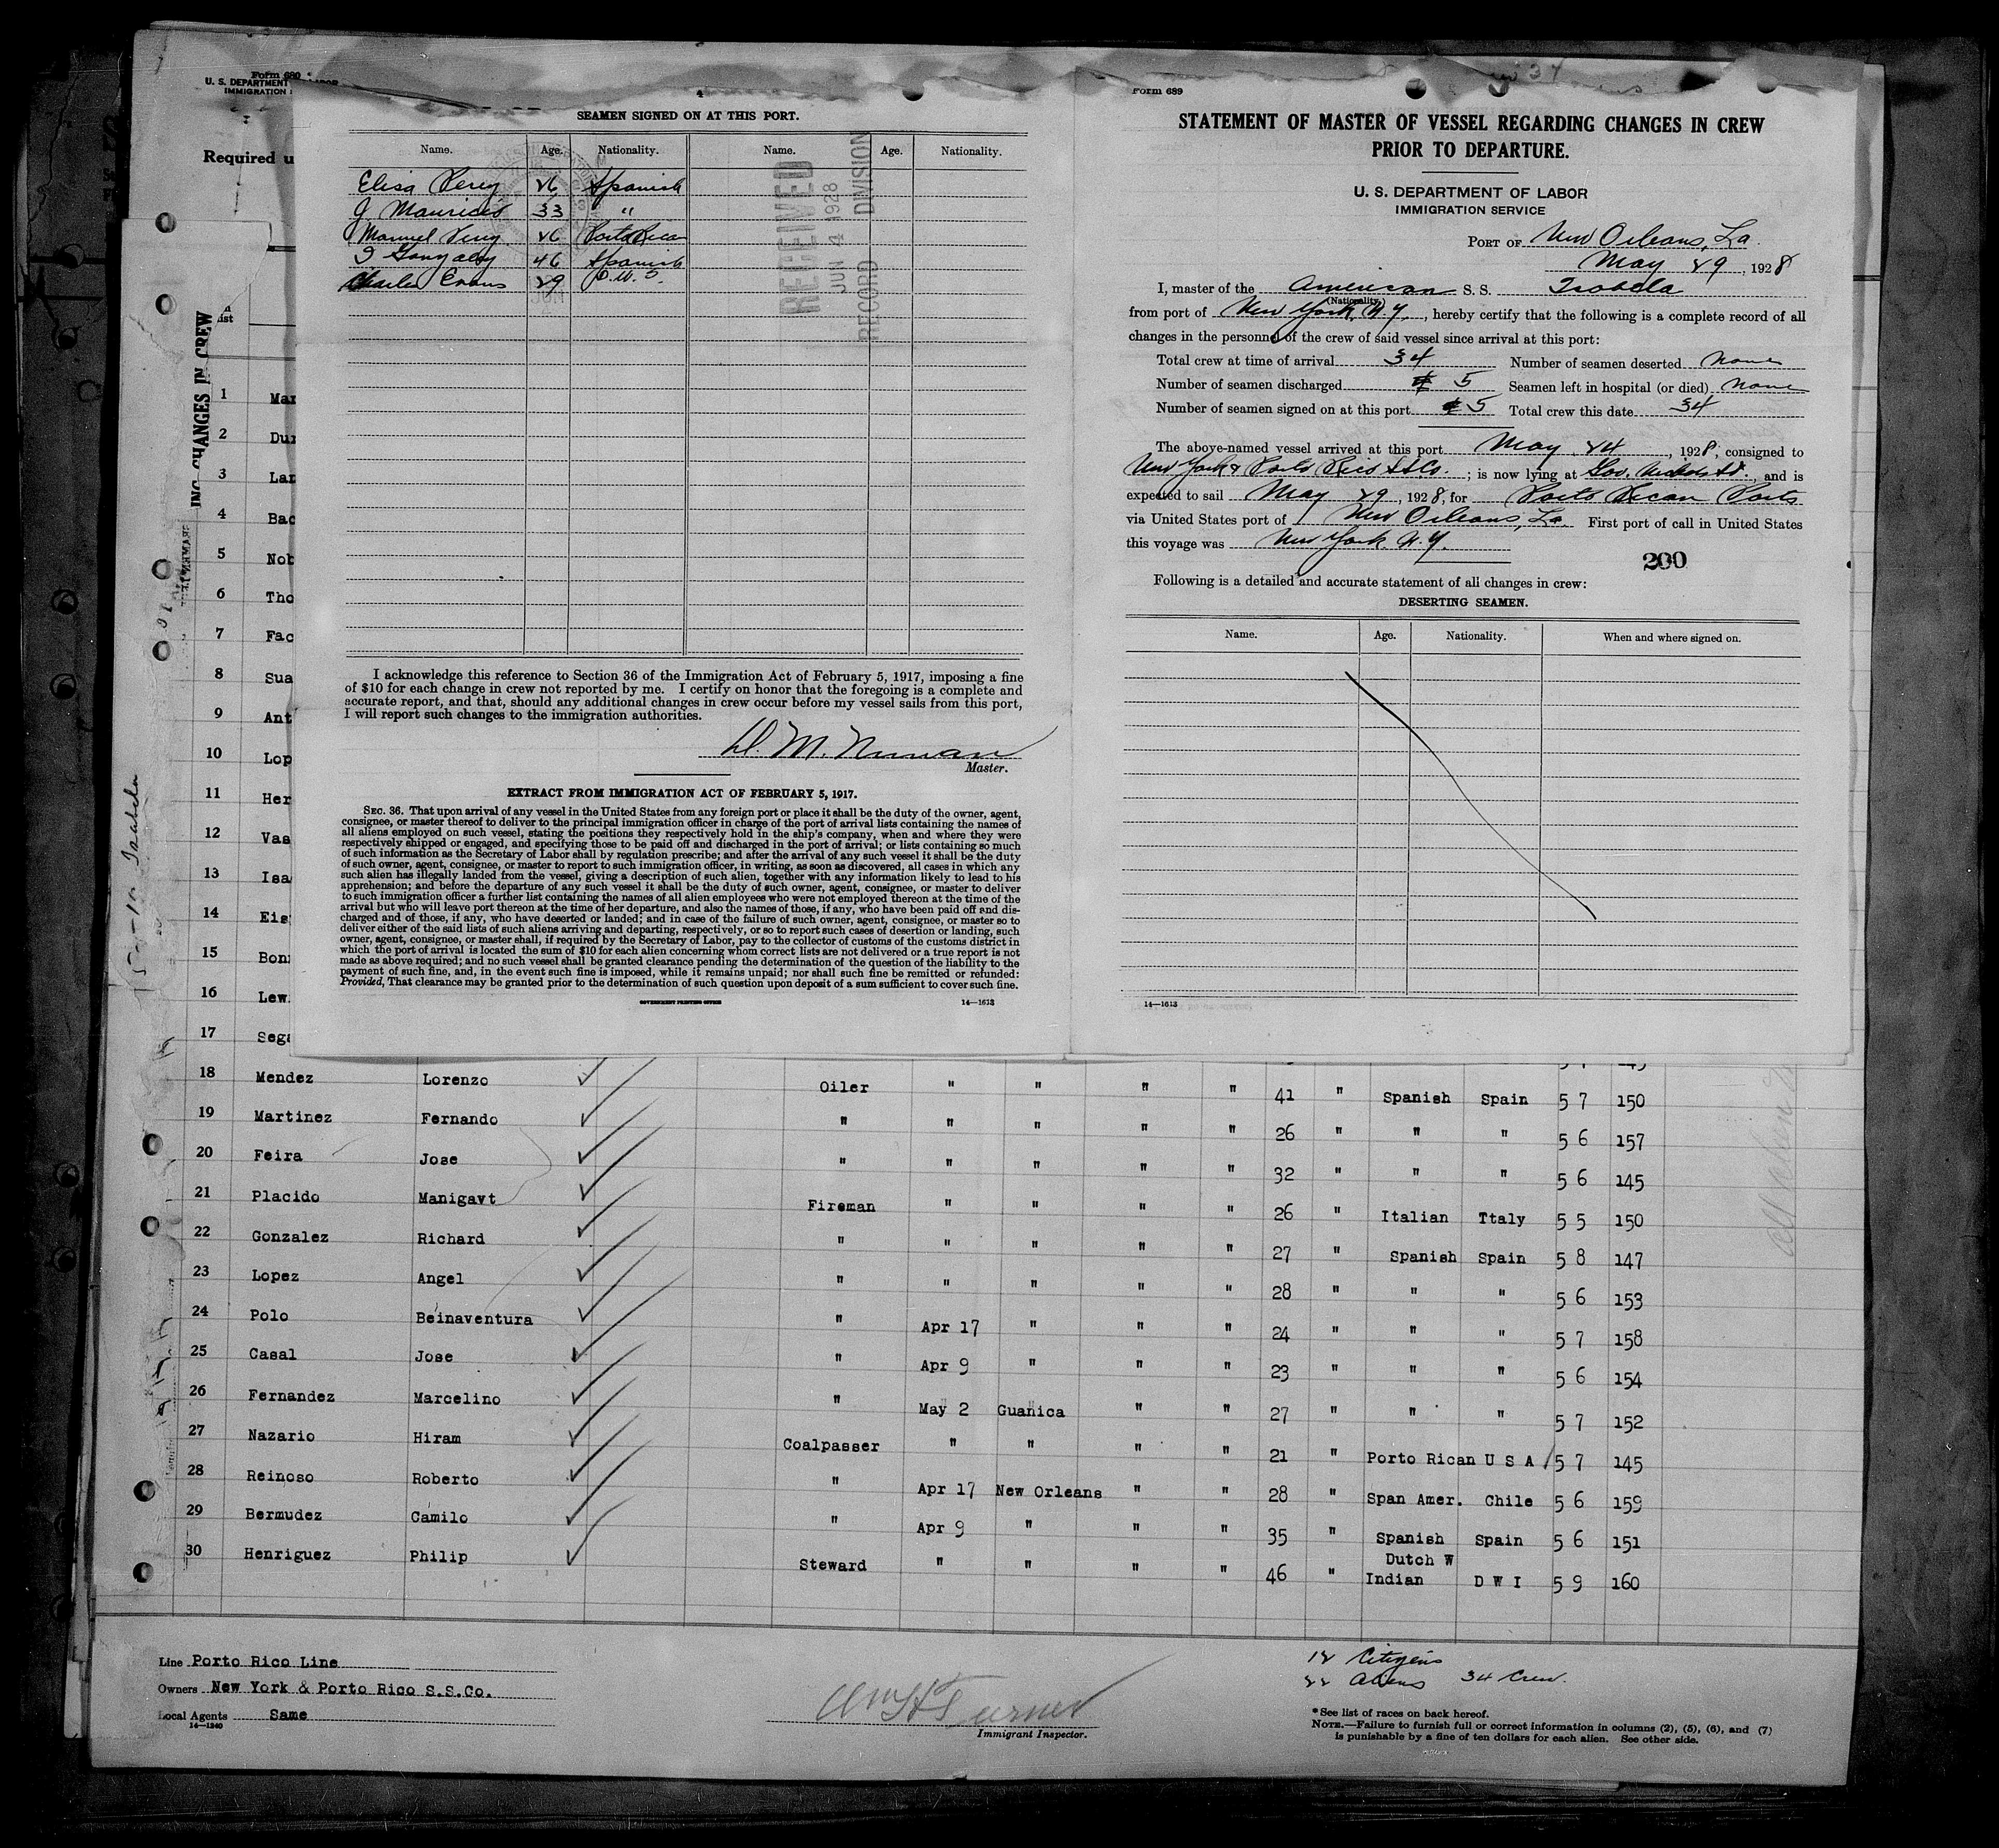 Form 680
U. S. DEPARTMENT
IMMIGRATION
Required u
ING CHANGES IN CREW
4
SEAMEN SIGNED ON AT THIS PORT.
Name. Age. Nationality. Name. Age. Nationality.
Elisa Perez 26 Spanish
J Mauricio 33 "
Manuel Perez 26 Porto Rican
J Gonzalez 46 Spanish
Charles Evans 29
RECEIVED
JUN 4 1928
RECORD DIVISION
I acknowledge this reference to Section 36 of the Immigration Act of February 5, 1917, imposing a fine
of $10 for each change in crew not reported by me. I certify on honor that the foregoing is a complete and
accurate report, and that, should any additional changes in crew occur before my vessel sails from this port,
I will report such changes to the immigration authorities.
D. M. Nunan
Master.
EXTRACT FROM IMMIGRATION ACT OF FEBRUARY 5, 1917.
SEC. 36. That upon arrival of any vessel in the United States from any foreign port or place it shall be the duty of the owner, agent,
consignee, or master thereof to deliver to the principal immigration officer in charge of the port of arrival lists containing the names of
all aliens employed on such vessel, stating the positions they respectively hold in the ship's company, when and where they were
respectively shipped or engaged, and specifying those to be paid off and discharged in the port of arrival; or lists containing so much
of such information as the Secretary of Labor shall by regulation prescribe; and after the arrival of any such vessel it shall be the duty
of such owner, agent, consignee, or master to report to such immigration officer, in writing, as soon as discovered, all cases in which any
such alien has illegally landed from the vessel, giving a description of such alien, together with any information likely to lead to his
apprehension; and before the departure of any such vessel it shall be the duty of such owner, agent, consignee, or master to deliver
to such immigration officer a further list containing the names of all alien employees who were not employed thereon at the time of the
arrival but who will leave port thereon at the time of her departure, and also the names of those, if any, who have been paid off and dis-
charged and of those, if any, who have deserted or landed; and in case of the failure of such owner, agent, consignee, or master so to
deliver either of the said lists of such aliens arriving and departing, respectively, or so to report such cases of desertion or landing, such
owner, agent, consignee, or master shall, if required by the Secretary of Labor, pay to the collector of customs of the customs district in
which the port of arrival is located the sum of $10 for each alien concerning whom correct lists are not delivered or a true report is not
made as above required; and no such vessel shall be granted clearance pending the determination of the question of the liability to the
payment of such fine, and, in the event such fine is imposed, while it remains unpaid; nor shall such fine be remitted or refunded:
Provided, That clearance may be granted prior to the determination of such question upon deposit of a sum sufficient to cover such fine.
GOVERNMENT PRINTING OFFICE 14—1613
Form 689
STATEMENT OF MASTER OF VESSEL REGARDING CHANGES IN CREW
PRIOR TO DEPARTURE.
U. S. DEPARTMENT OF LABOR
IMMIGRATION SERVICE
PORT OF New Orleans, La.
May 29, 1928
I, master of the American S. S. Isabela
(Nationality.)
from port of New York, N.Y., hereby certify that the following is a complete record of all
changes in the personnel of the crew of said vessel since arrival at this port:
Total crew at time of arrival 34 Number of seamen deserted None
Number of seamen discharged 5 Seamen left in hospital (or died) None
Number of seamen signed on at this port 5 Total crew this date 34
The above-named vessel arrived at this port May 24, 1928, consigned to
New York & Porto Rico SS Co.; is now lying at Gov. Nicholls St., and is
expected to sail May 29, 1928, for Porto Rican Ports
via United States port of New Orleans, La First port of call in United States
this voyage was New York N.Y.
200
Following is a detailed and accurate statement of all changes in crew:
DESERTING SEAMEN.
Name. Age. Nationality. When and where signed on.
14—1613
1 Mar
2 Dur
3 Lar
4 Bac
5 Nob
6 Tho
7 Fac
8 Sua
9 Ant
10 Lop
11 Her
12 Vas
13 Isa
14 Eis
15 Bon
16 Lew
17 Sega
18 Mendez Lorenzo Oiler " " " " 41 " Spanish Spain 5 7 150
19 Martinez Fernando " " " " " 26 " " " 5 6 157
20 Feira Jose " " " " " 32 " " " 5 6 145
21 Placido Manigavt Fireman " " " " 26 " Italian Ttaly 5 5 150
22 Gonzalez Richard " " " " " 27 " Spanish Spain 5 8 147
23 Lopez Angel " " " " " 28 " " " 5 6 153
24 Polo Beinaventura " Apr 17 " " " 24 " " " 5 7 158
25 Casal Jose " Apr 9 " " " 23 " " " 5 6 154
26 Fernandez Marcelino " May 2 Guanica " " 27 " " " 5 7 152
27 Nazario Hiram Coalpasser " " " " 21 " Porto Rican U S A 5 7 145
28 Reinoso Roberto " Apr 17 New Orleans " " 28 " Span Amer. Chile 5 6 159
29 Bermudez Camilo " Apr 9 " " " 35 " Spanish Spain 5 6 151
30 Henriguez Philip Steward " " " " 46 " Dutch W Indian D W I 5 9 160
Line Porto Rico Line
Owners New York & Porto Rico S.S.Co.
Local Agents Same
14—1240
Wm H Turner
Immigrant Inspector.
12 Citizens
22 Aliens 34 Crew.
* See list of races on back hereof.
NOTE.—Failure to furnish full or correct information in columns (2), (5), (6), and (7)
is punishable by a fine of ten dollars for each alien. See other side.